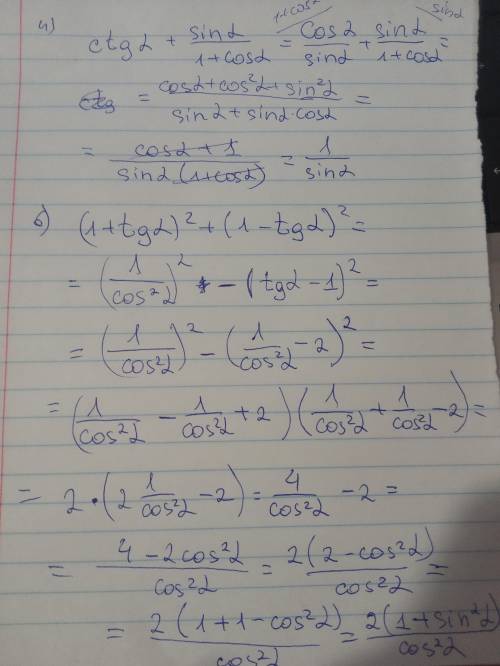 4) ctgα + sinα/(1+cosα) = cosα/sinα (1+cosα + sinα/(1+cosα) (sinα =
= (cosα+cos²α+sin²α)/(sinα+sinα·cosα) =
= (cosα+1)/(sinα(1+cosα)) = 1/sinα
б) (1+tgα)² + (1-tgα)² =
= (1/cos²α)² - (tgα-1)² =
= (1/cos²α)² - (1/cos²α - 2)² =
= (1/cos²α - 1/cos²α + 2)(1/cos²α + 1/cos²α - 2) =
= 2·(2 1/cos²α - 2) = 4/cos²α - 2 =
= (4-2cos²α)/cos²α = 2(2-cos²α)/cos²α =
= 2(1+1-cos²α)/cos²α = 2(1+sin²α)/cos²α